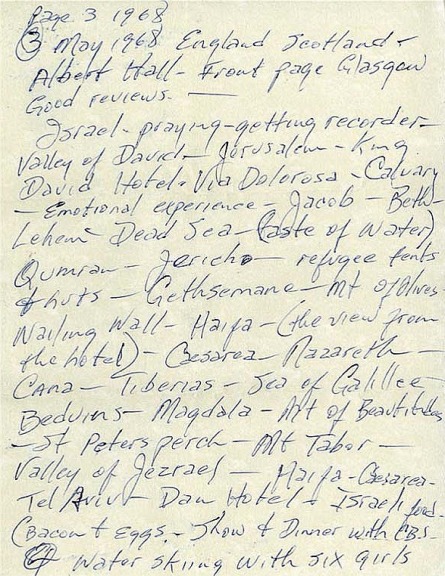 Page 3 1968
③ May 1968 England Scotland &
Albert Hall - Front page Glasgow
Good reviews. —
Israel - praying - getting recorder -
Valley of David - Jerusalem - King
David Hotel - Via Dolorosa - Calvary
- Emotional experience - Jacob - Beth-
Lehem - Dead Sea - (taste of water)
Qumran - Jericho - refugee tents
& huts - Gethsemane - Mt of Olives -
Wailing Wall - Haifa - (the view from
the hotel) - Caesarea - Nazareth -
Cana - Tiberias - Sea of Galillee
Beduins - Magdala - Mt of Beautitudes
- St Peters perch - Mt Tabor -
Valley of Jezrael - Haifa - Caesarea -
Tel Aviv - Dan Hotel - Israeli food -
(Bacon & Eggs - Show & Dinner with CBS -
Water skiing with six girls